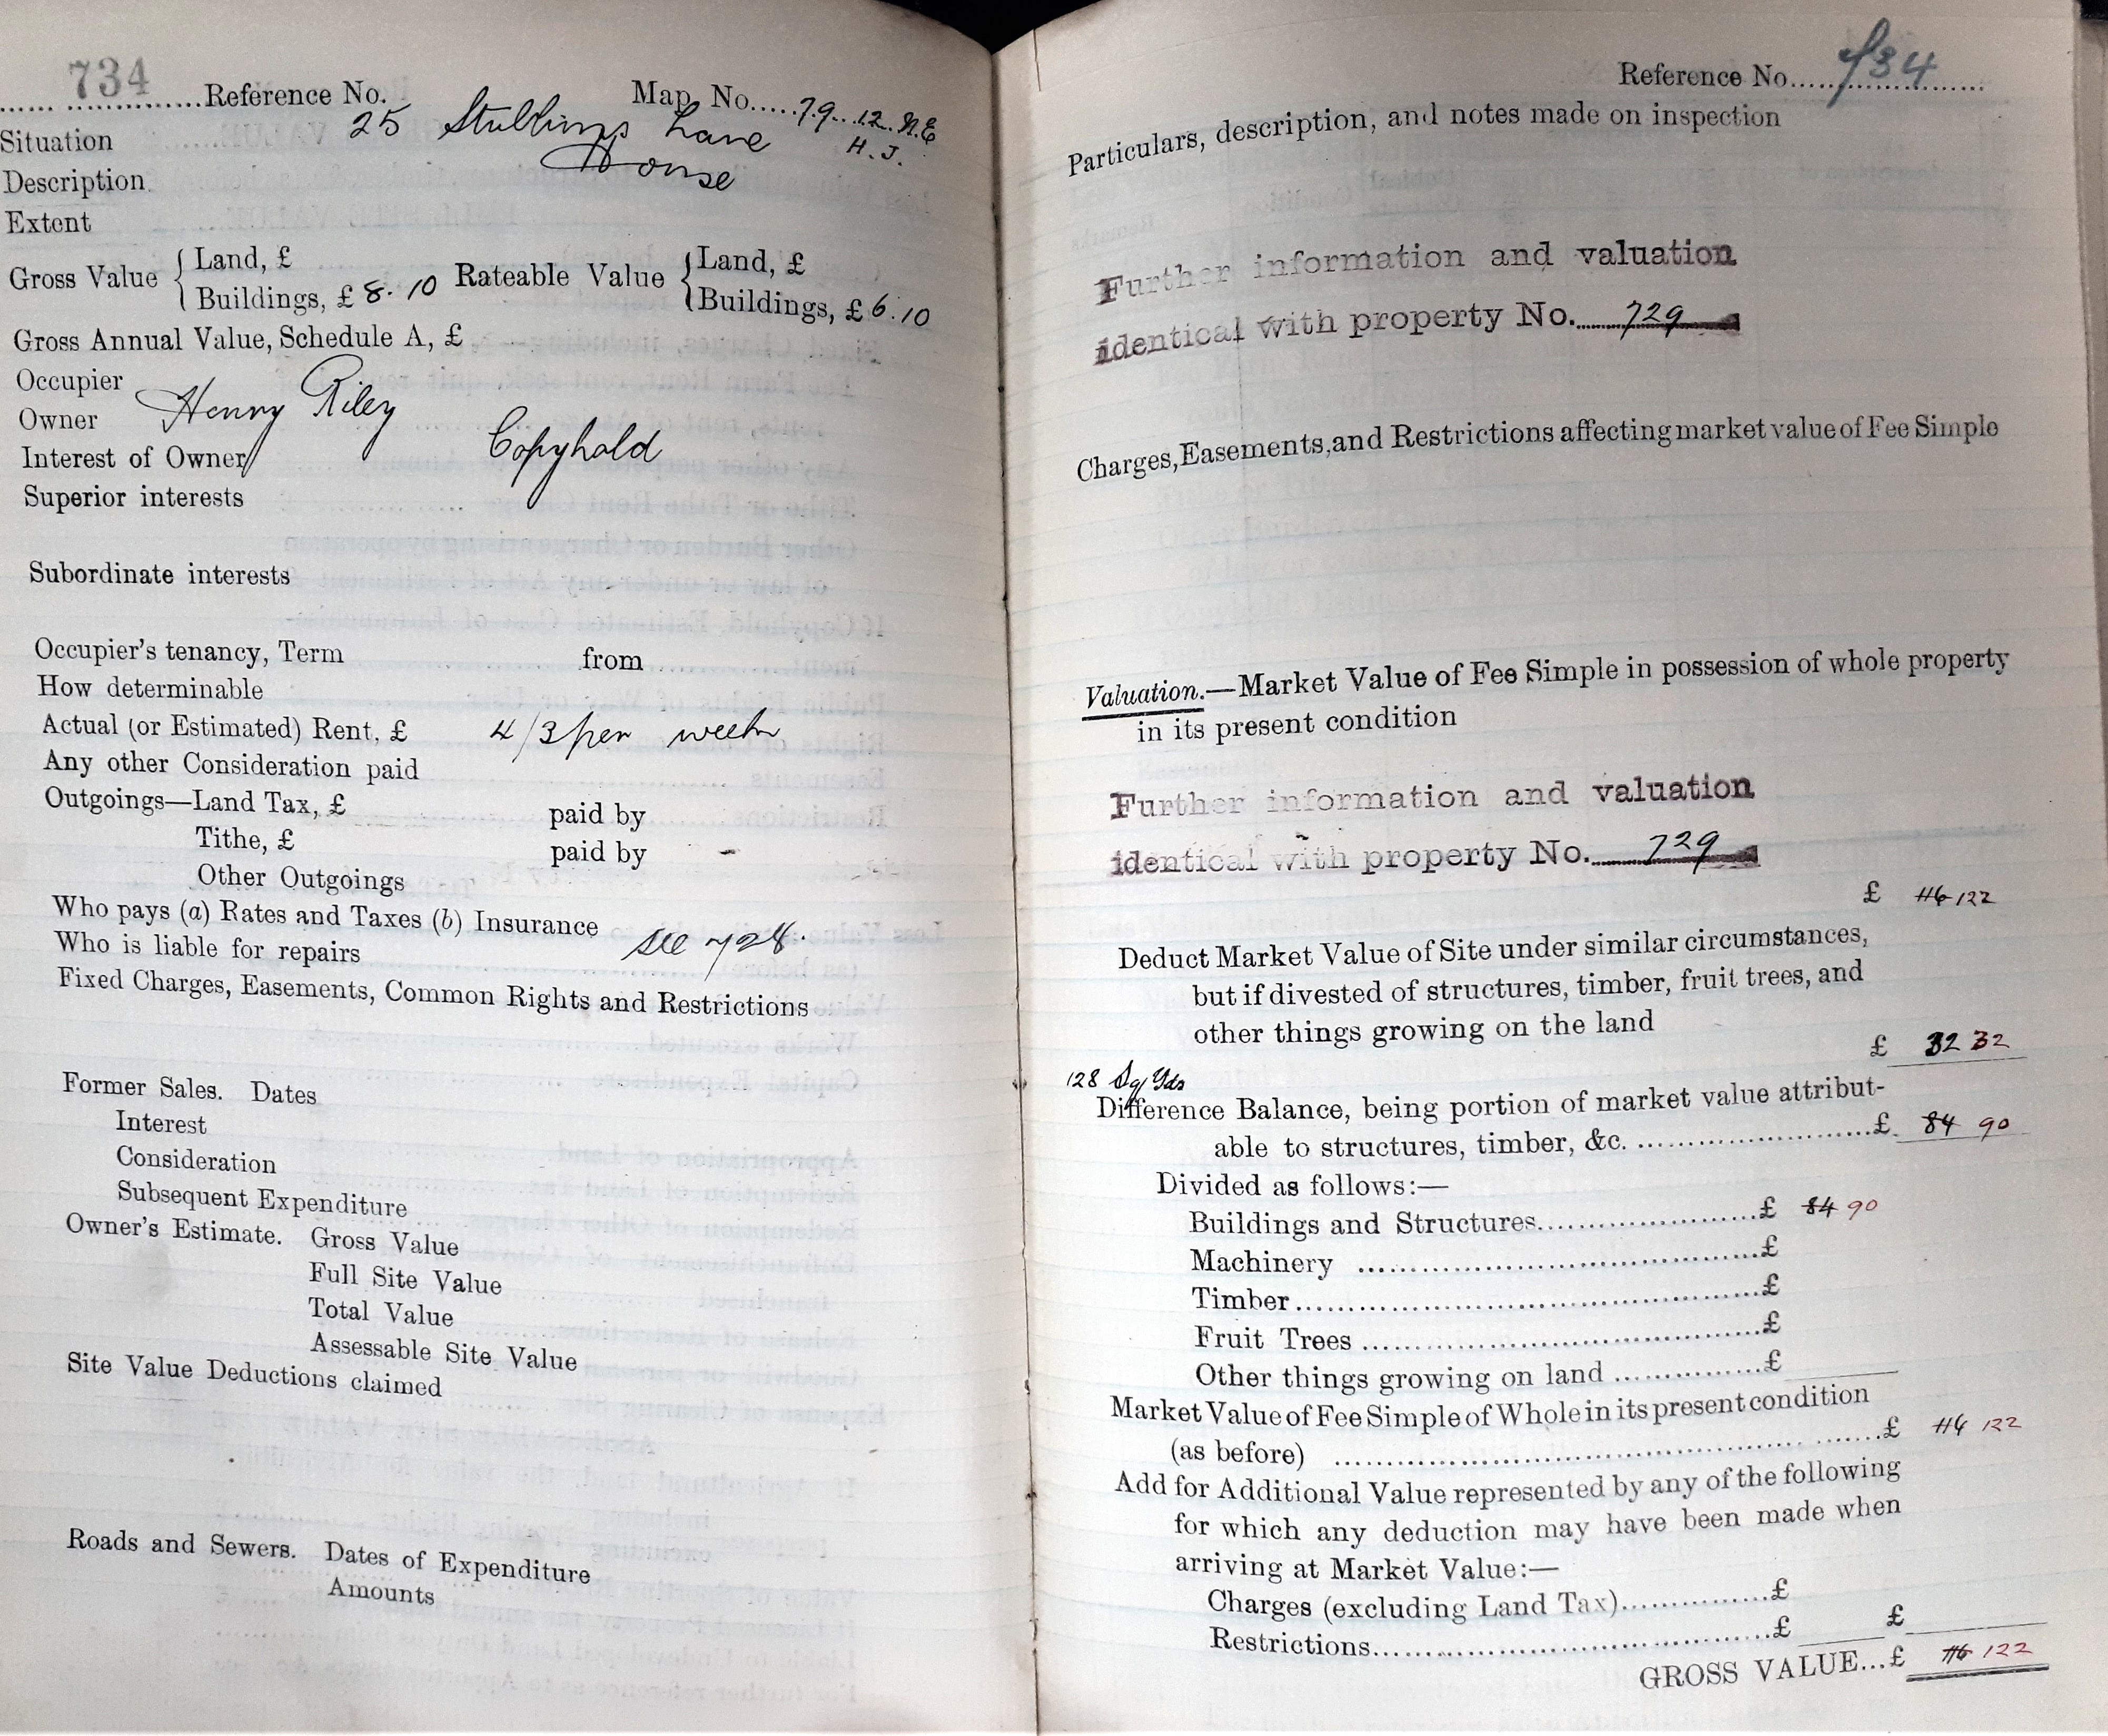 734
Reference No. Map No. 79.12.N.E
H.J.
Situation 25 Stubbings Lane
Description House
Extent
Gross Value { Land, £ Rateable Value { Land, £
Buildings, £ 8.10 Buildings, £ 6.10
Gross Annual Value, Schedule A, £
Occupier
Owner Henry Riley
Interest of Owner Copyhold
Superior interests
Subordinate interests
Occupier's tenancy, Term from
How determinable
Actual (or Estimated) Rent, £ 4/3 per week
Any other Consideration paid
Outgoings—Land Tax, £ paid by
Tithe, £ paid by
Other Outgoings
Who pays (a) Rates and Taxes (b) Insurance
Who is liable for repairs see 728.
Fixed Charges, Easements, Common Rights and Restrictions
Former Sales. Dates
Interest
Consideration
Subsequent Expenditure
Owner's Estimate. Gross Value
Full Site Value
Total Value
Assessable Site Value
Site Value Deductions claimed
Roads and Sewers. Dates of Expenditure
Amounts
Reference No. 734
Particulars, description, and notes made on inspection
Further information and valuation
identical with property No. 729
Charges, Easements, and Restrictions affecting market value of Fee Simple
Valuation.—Market Value of Fee Simple in possession of whole property
in its present condition
Further information and valuation
identical with property No. 729
£ 116 122
Deduct Market Value of Site under similar circumstances,
but if divested of structures, timber, fruit trees, and
other things growing on the land
£ 32 32
128 Sq Yds
Difference Balance, being portion of market value attribut-
able to structures, timber, &c. £ 84 90
Divided as follows:—
Buildings and Structures £ 84 90
Machinery £
Timber £
Fruit Trees £
Other things growing on land £
Market Value of Fee Simple of Whole in its present condition
(as before) £ 116 122
Add for Additional Value represented by any of the following
for which any deduction may have been made when
arriving at Market Value:—
Charges (excluding Land Tax) £
Restrictions £ £
GROSS VALUE...£ 116 122